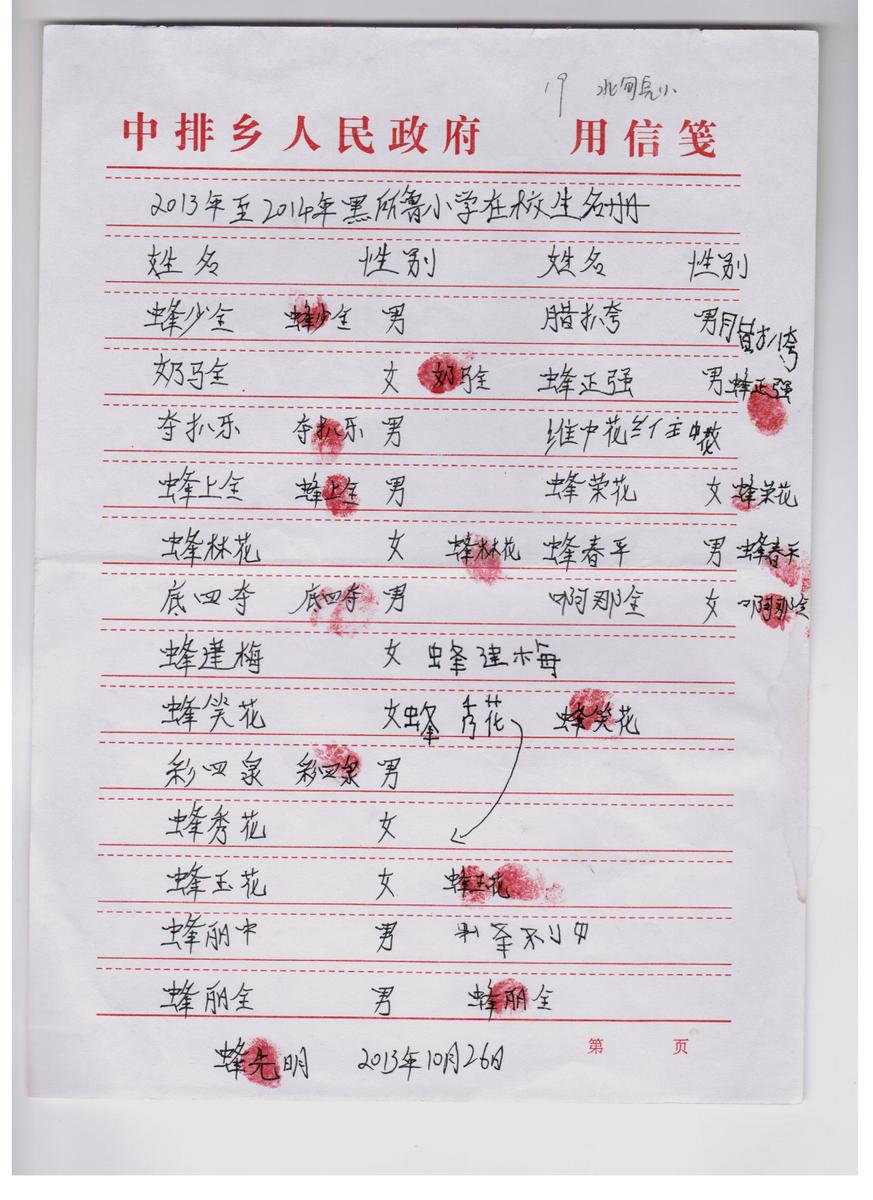 19
中排乡人民政府 用信笺
2013年至2014年黑所鲁小学在校生名册
姓名 性别 姓名 性别
蜂少全 蜂少全 男 腊扒夸 男 腊扒夸
奶马全 女 奶马全 蜂正强 男 蜂正强
夺扒乐 夺扒乐 男 维中花 维中花
蜂上全 蜂上全 男 蜂荣花 女 蜂荣花
蜂林花 女 蜂林花 蜂春平 男 蜂春平
底四夺 底四夺 男 啊那全 女 啊那全
蜂建梅 女 蜂建梅
蜂笑花 女 蜂秀花 蜂笑花
彩四泉 彩四泉 男
蜂秀花 女
蜂玉花 女 蜂玉花
蜂丽中 男
蜂丽全 男 蜂丽全
蜂先明 2013年10月26日
第 页